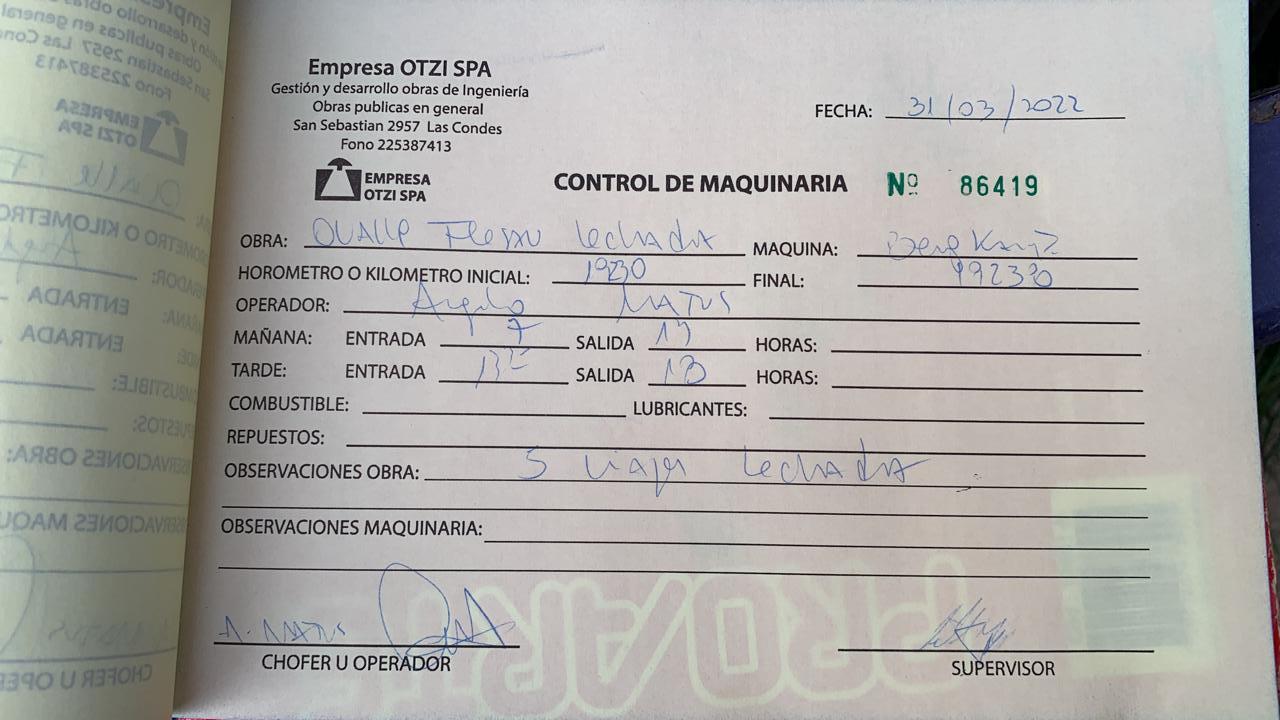 Empresa OTZI SPA
Gestión y desarrollo obras de Ingeniería
Obras publicas en general
San Sebastian 2957 Las Condes
Fono 225387413
FECHA: 31/03/2022
EMPRESA
OTZI SPA
CONTROL DE MAQUINARIA Nº 86419
OBRA: OVALLE lechada MAQUINA:
HOROMETRO O KILOMETRO INICIAL: 19230 FINAL:
OPERADOR: MATUS
MAÑANA: ENTRADA 7 SALIDA HORAS:
TARDE: ENTRADA SALIDA HORAS:
COMBUSTIBLE: LUBRICANTES:
REPUESTOS:
OBSERVACIONES OBRA: 5 viajes lechada
OBSERVACIONES MAQUINARIA:
A. MATUS
CHOFER U OPERADOR SUPERVISOR